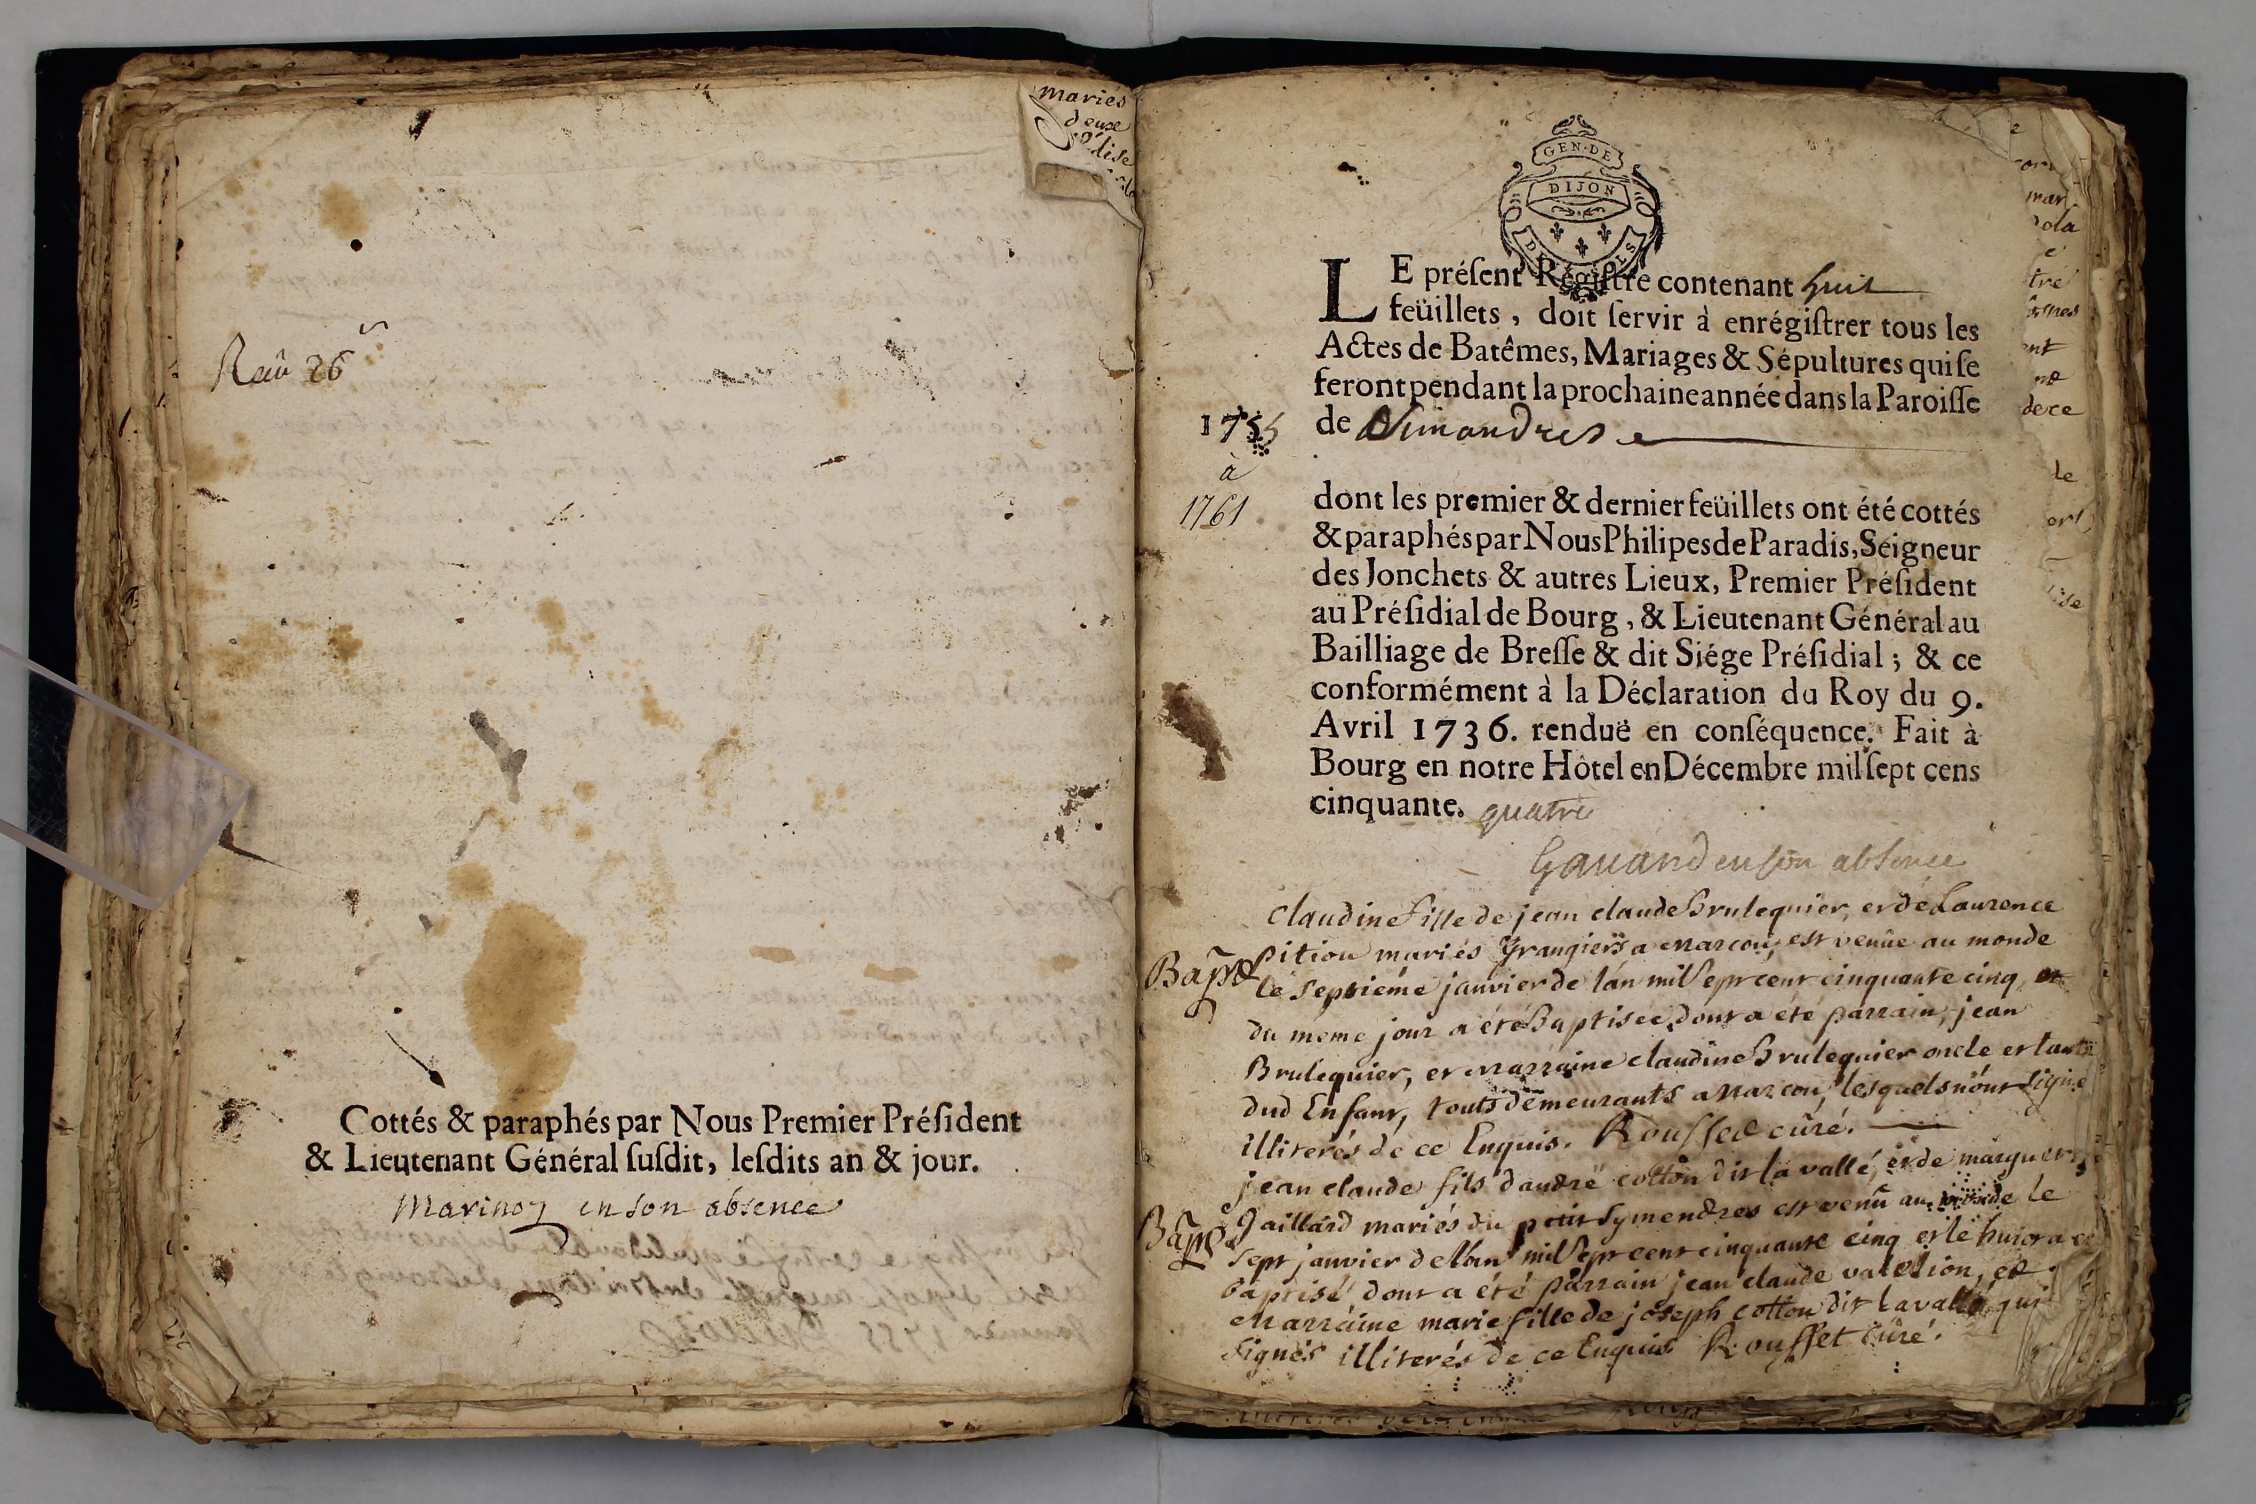 mariés
deux
Reçû 26ˢ
Cottés & paraphés par Nous Premier Préſident
& Lieutenant Général ſuſdit, leſdits an & jour.
en son absence
GEN·DE
DIJON
LE préſent Régiſtre contenant huit
feüillets, doit ſervir à enrégiſtrer tous les
Actes de Batêmes, Mariages & Sépultures qui ſe
feront pendant la prochaine année dans la Paroiſſe
de Simandres
1755
à
1761
dont les premier & dernier feüillets ont été cottés
& paraphés par Nous Philipes de Paradis, Seigneur
des Jonchets & autres Lieux, Premier Préſident
au Préſidial de Bourg, & Lieutenant Général au
Bailliage de Breſſe & dit Siége Préſidial; & ce
conformément à la Déclaration du Roy du 9.
Avril 1736. renduë en conſéquence. Fait à
Bourg en notre Hôtel en Décembre mil ſept cens
cinquante. quatre
Gauand en son absence
claudine fille de jean claude Brulequier, et de Laurence
Pition mariés grangiers a marcou, est venüe au monde
Bapt
le septiéme janvier de lan mil sept cent cinquante cinq et
du méme jour a été Baptisée, dont a été parrain, jean
Brulequier, et marraine claudine Brulequier oncle et tante
dud Enfant, touts demeurants a marcou, lesquels n'ont signé
illiterés de ce Enquis. Roussed cûré.
jean claude fils d'andré cotton dit la vallé, et de marguer
Gaillard mariés du petit Symendres est venû au monde le
Bapt
sept janvier de l'an mil sept cent cinquante cinq et le huit a
baptisé dont a été parrain jean claude, et
marraine marie fille de joseph cotton dit lavallé qui
signés illiterés de ce Enquis Rousset cûré.